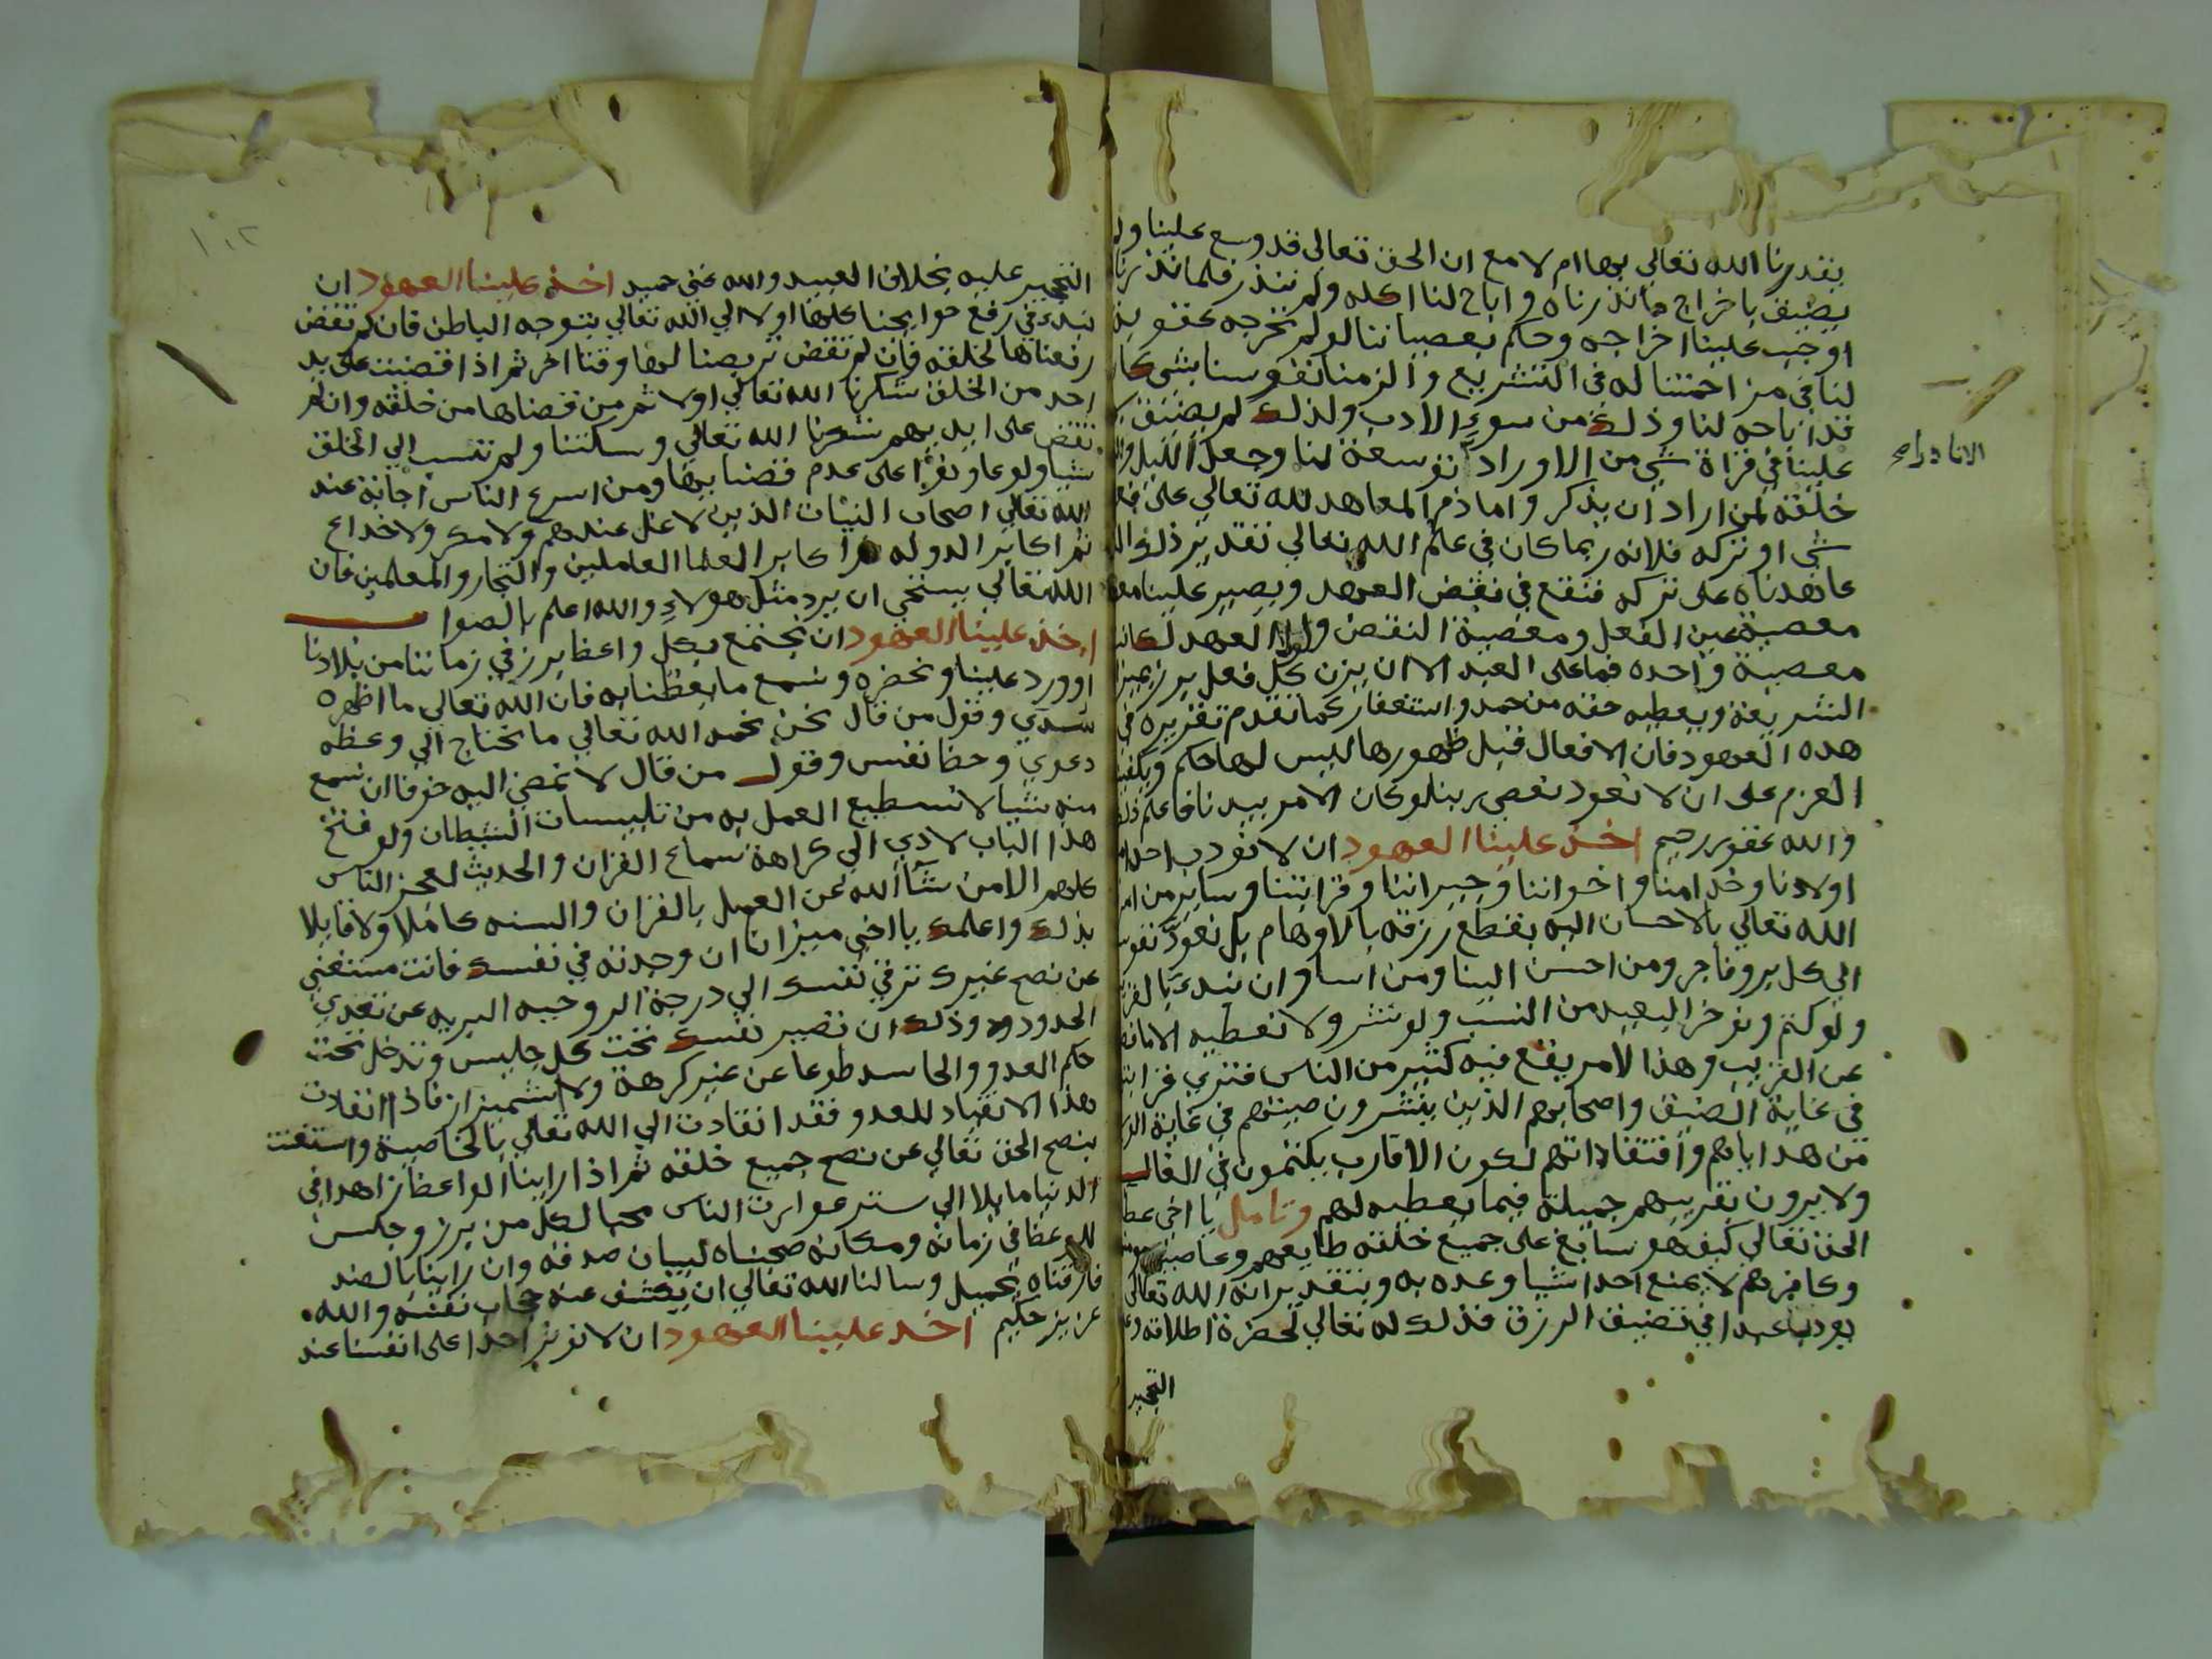 يقدرنا الله تعالى بها ام لا مع ان الحق تعالى قد وسع علينا ولم
يضيق باخراج ما نذرناه واباح لنا اكله ولم ننذر فلما نذرنا
اوجب علينا اخراجه وحكم بعصياننا لو لم نخرجه عقوبة
لنا في مزاحمتنا له في التشريع والزمنا نفوسنا بشي كان
قد اباحه لنا وذلك من سوء الادب ولذلك لم يضيق
علينا في قراة شي من الاوراد توسعة لنا وجعل الليل
خلفة لمن اراد ان يذكر واما ذم المعاهد لله تعالى على فعل
شي او تركه فلانه ربما كان في علم الله تعالى تقدير ذلك
عاهدناه على تركه فنقع في نقض العهد ويصير علينا
معصية عين الفعل ومعصية النقض ولولا العهد لكانت
معصية واحده فما على العبد الا ان يزن كل فعل برز بميزان
الشريعة ويعطيه حقه من حمد واستغفار كما تقدم تقريره في
هذه العهود فان الافعال قبل ظهورها ليس لها حكم
العزم على ان لا نعود نعصي ربنا لو كان الامر بيدنا فاعلم ذلك
والله غفور رحيم اخذ علينا العهود ان لا نعود احدا من
اولادنا وخدامنا واخواننا وجيراننا وقرابتنا وساير من امر
الله تعالى بالاحسان اليه بقطع رزقه بالاوهام بل نعود نفوسنا
الي كل بر وفاجر ومن احسن الينا ومن اسا وان نبدء بالقريب
ولو كتم ونوخر البعيد من النسب ولو نشر ولا نعطيه الا ما
عن القريب وهذا الامر يقع فيه كثير من الناس فتري قرابته
في غاية الضيق واصحابهم الذين ينشرون صيتهم في غاية
من هداياهم وافتقاداتهم لكون الاقارب يكتمون في الغالب
ولا يرون بقريبهم جميلة فيما يعطيه لهم وتامل يا اخي عطا
الحق تعالى كيف هو سابغ على جميع خلقه طايعهم وعاصيهم
وكافرهم لا يمنع احدا شيا وعده به وبتقدير انه الله تعالى
يودب عبدا في تضييق الرزق فذلك له تعالى لحضرة اطلاقه
التحجير
التحجير عليه بخلاف العبيد والله غني حميد اخذ علينا العهود ان
نبدء في رفع حوايجنا كلها اولا الي الله تعالى بتوجه الباطن فان لم تقض
رفعناها لخلقه فان لم تقض تربصنا لها وقتا اخر ثم اذا قضيت على يد
احد من الخلق شكرنا الله تعالى اولا ثم من قضاها من خلقه وان لم
تقض على ايديهم شكرنا الله تعالى وسكتنا ولم ننسب الي الخلق
شيا ولو عاونوا على عدم قضايها ومن اسرع الناس اجابة عند
الله تعالى اصحاب النيات الذين لا غل عندهم ولا مكر ولا خداع
ثم اكابر الدوله ثم اكابر العلما العاملين والتجار والمعلمين فان
الله تعالى يستحي ان يرد مثل هولاء والله اعلم بالصواب
اخذ علينا العهود ان نجتمع بكل واعظ برز في زماننا من بلادنا
او ورد علينا ونحضره ونسمع ما يعظنا به فان الله تعالى ما اظهره
سدي وقول من قال نحن نحمد الله تعالى ما نحتاج الي وعظه
دعوي وحظ نفس وقول من قال لا نمضي اليه خوفا ان نسمع
منه شيا لا نستطيع العمل به من تلبيسات الشيطان ولو فتح
هذا الباب لادي الي كراهة سماع القران والحديث لعجز الناس
كلهم الا من شا الله عن العمل بالقران والسنه كاملا ولا قايلا
بذلك واعلمك يا اخي ميزانا ان وجدته في نفسك فانت مستغني
عن نصح غيرك ترقي نفسك الي درجة الروحيه البريه عن تعدي
الحدود وذلك ان تصير نفسك تحت كل جليس وتدخل تحت
حكم العدو والحاسد طوعا عن غير كرهة ولا اشميزاز فاذا انقادت
هذا الانقياد للعدو فقد انقادت الي الله تعالى بالخاصية واستغنت
بنصح الحق تعالى عن نصح جميع خلقه ثم اذا راينا الواعظ زاهدا في
الدنيا مايلا الي ستر عورات الناس محبا لكل من برز وجلس
للوعظ في زمانه ومكانه صحبناه لبيان صدقه وان راينا بالضد
فارقناه بجميل وسالنا الله تعالى ان يكشف عنه حجاب نفسه والله
عزيز حكيم اخذ علينا العهود ان لا نوثر احدا على انفسنا عند